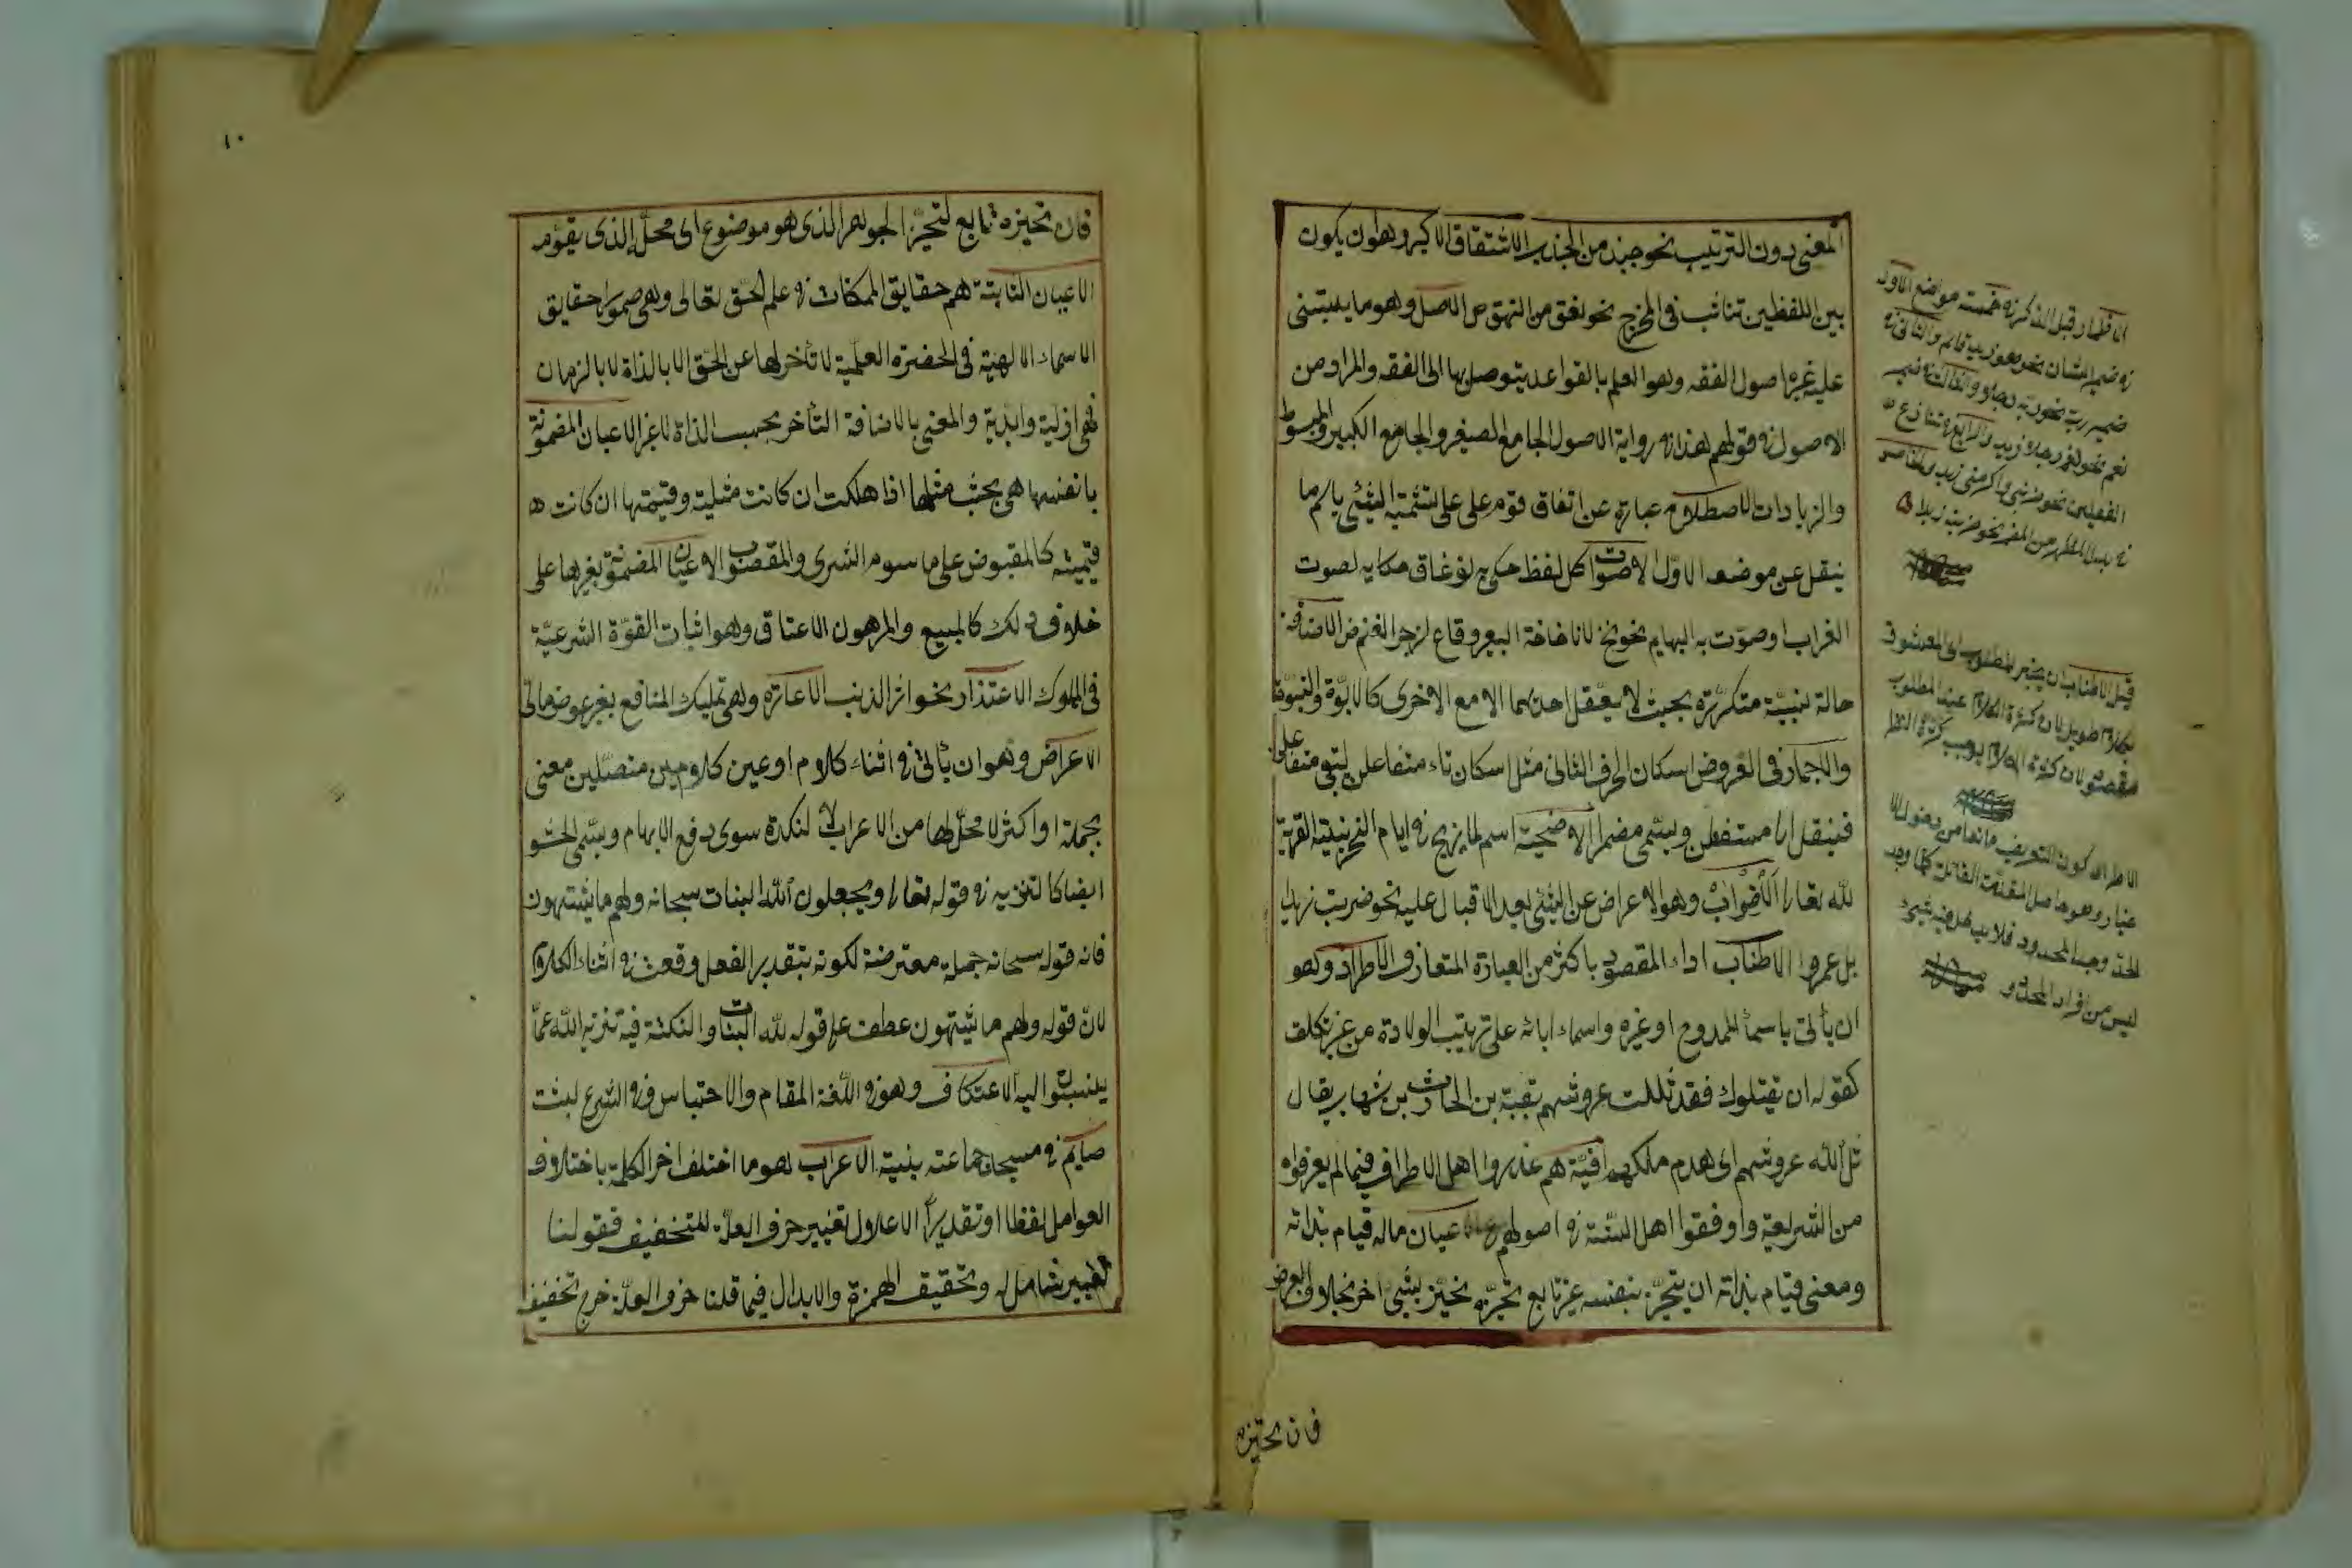 المعنى دون الترتيب نحو جبذ من الجذب الاشتقاق الاكبر وهو ان يكون
بين اللفظين تناسب في المخرج نحو نعق من النهق ص الاصل وهو ما يبتنى
عليه غيره اصول الفقه وهو العلم بالقواعد يتوصل بها الى الفقه والمراد من
الاصول في قولهم هذا في رواية الاصول الجامع الصغير والجامع الكبير والمبسوط
والزيادات الاصطلاح عبارة عن اتفاق قوم على على تسمية الشئ باسم ما
ينقل عن موضعه الاول الاصوات كل لفظ حكى به نحو غاق حكاية لصوت
الغراب او صوت به البهايم نحو نخ لاناخة البعير وقاع لزجر الغنم ض الاضافة
حالة نسبية متكررة بحيث لا يعقل احديهما الا مع الاخرى كالابوة والبنوة
والاضمار في العروض اسكان الحرف الثاني مثل اسكان تاء متفاعلن ليبقى متفاعلن
فينقل الى مستفعلن ويسمى مضمرا الاضحية اسم لما يذبح في ايام النحر بنية القربة
لله تعالى الاضراب وهو الاعراض عن الشئ بعد الاقبال عليه نحو ضربت زيدا
بل عمروا الاطناب اداء المقصود باكثر من العبارة المتعارف الاطراد وهو
ان يأتى باسماء الممدوح او غيره واسماء ابائه على ترتيب الولادة من غير تكلف
كقوله ان يقتلوك فقد ثللت عروشهم بعتبة بن الحارث بن شهاب يقال
ثل الله عروشهم اى هدم ملكهم هم عذروا اهل الاطراف فيما لم يعرفوه
من الشريعة ووافقوا اهل السنة في اصولهم الاعيان ماله قيام بذاته
ومعنى قيام بذاته ان يتحيز بنفسه غير تابع تحيزه تحيز شئ اخر بخلاف العرض
فان تحيزه
ان الاظمار قبل الذكر في خمسة مواضع الاول
في ضمير الشان نحو هو زيد قائم والثاني في
ضمير رب نحو ربه رجلا والثالث في ضمير
نعم نحو نعم رجلا زيد والرابع في تنازع
الفعلين نحو ضربني واكرمني زيد والخامس
في بدل المظهر من المضمر نحو ضربته زيدا
قيل الاطناب ان يخبر المطلوب اى المعشوق
بكلام طويل لان كثرة الكلام عند المطلوب
مقصود لان كثرة الكلام يوجب كثرة النظر
الاطراد كون التعريف مانعا من دخول
وهو حاصل المقدمة القائلة كلما وجد
الحد وجد المحدود
ليس من افراد المحدود
١٠
فان تحيزه تابع لتحيز الجوهر الذى هو موضوع اى محل الذى يقومه
الاعيان الثابتة هم حقايق الممكنات في علم الحق تعالى وهى صور حقايق
الاسماء الالهية في الحضرة العلمية لا تأخر لها عن الحق الا بالذاة لا بالزمان
فهى ازلية وابدية والمعنى بالاضافة التأخر بحسب الذاة لا غير الاعيان المضمونة
بانفسها هى يجب مثلها اذا هلكت ان كانت مثلية وقيمتها ان كانت
قيمية كالمقبوض على ما سوم الشرى والمغصوب الاعيان المضمونة بغيرها على
خلاف ذلك كالمبيع والمرهون الاعتاق وهو اثبات القوة الشرعية
في المملوك الاعتذار نحو اثر الذنب الاعارة وهى تمليك المنافع بغير عوض مالى
الاعراض وهو ان يأتى في اثناء كلام او عين كلامين متصلين معنى
بجملة او اكثر لا محل لها من الاعراب لنكتة سوى دفع الابهام ويسمى الحشو
ايضا كالتنزيه في قوله تعالى ويجعلون لله البنات سبحانه ولهم ما يشتهون
فان قوله سبحانه جملة معترضة لكونه بتقدير الفعل وقعت في اثناء الكلام
لان قوله ولهم ما يشتهون عطف على قوله لله البنات والنكتة فيه تنزيه الله عما
ينسبون اليه الاعتكاف وهو في اللغة المقام والاحتباس وفي الشرع لبث
صايم في مسجد جماعة بنية الاعراب هو ما اختلف اخر الكلمة باختلاف
العوامل لفظا او تقديرا الاعلال تغيير حرف العلة للتخفيف فقولنا
تغيير شامل له وتحقيق الهمزة والابدال فيما قلنا حرف العلة خرج تخفيف